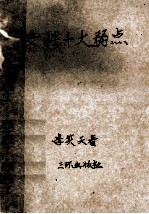 女性十大弱点
李笑天著
三环出版社